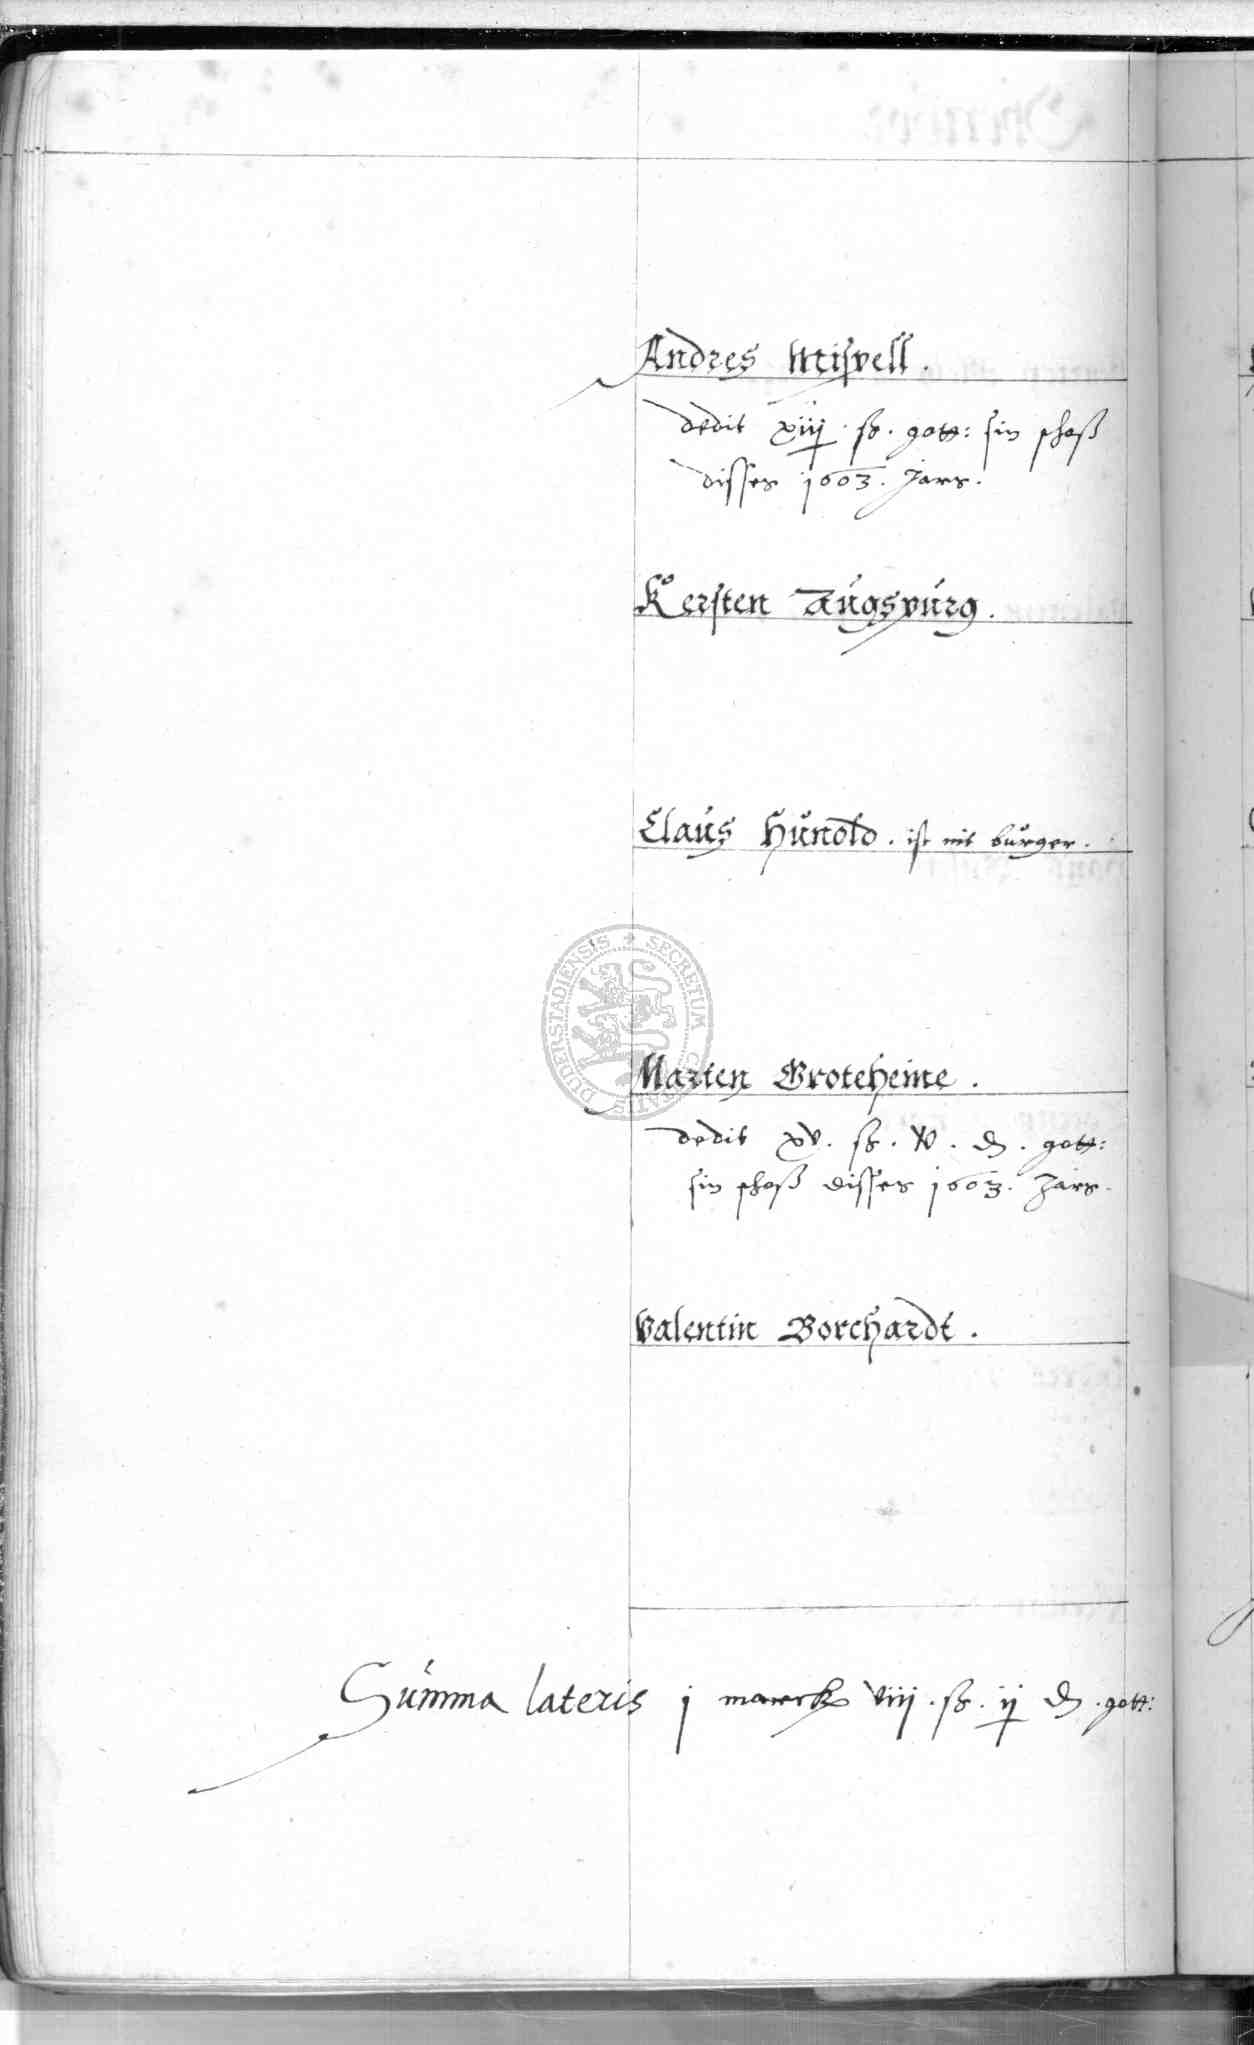 Andres Mißvell.
dedit xiiij. ß. gott: sin schoß
disses 1603. Jars.
Kersten Augspurg.
Claus Hunold. ist nit burger.
SECRETUM CIVITATIS DUDERSTADIENSIS
Marten Grotehenne.
dedit xv. ß. v. d. gott:
sin schoß disses 1603. Jars.
Valentin Borchardt.
Summa lateris j marck viiij. ß. ij d. gott: